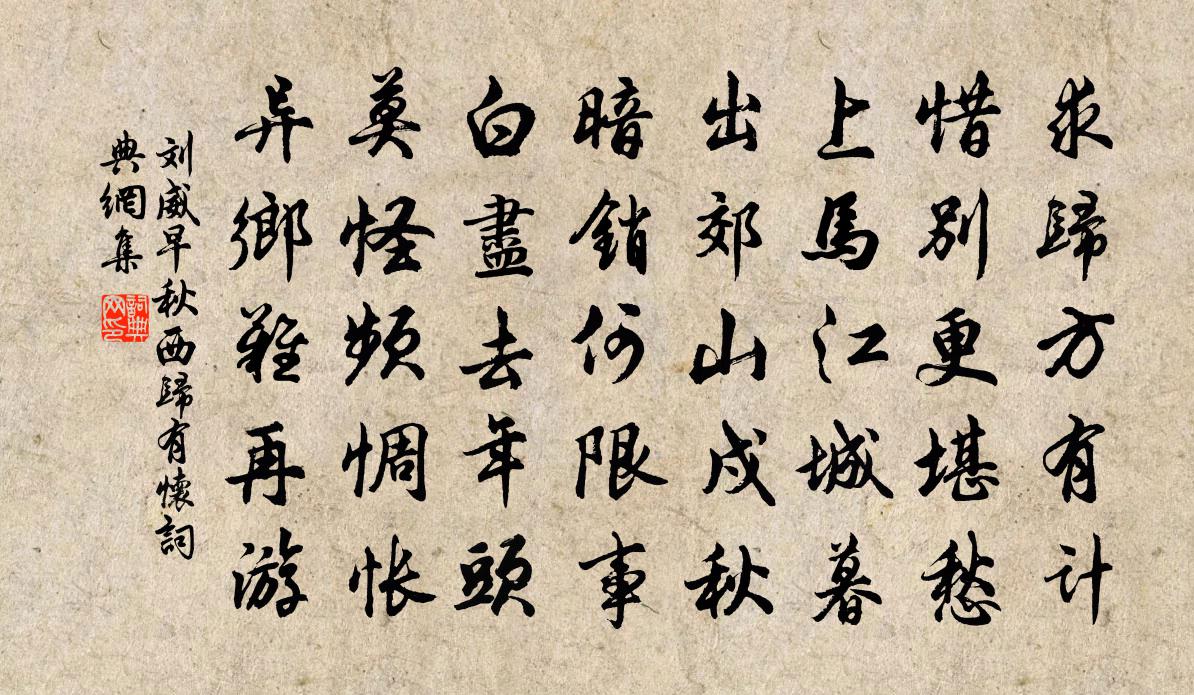 求歸方有计
惜别更堪愁
上馬江城暮
出郊山戍秋
暗銷何限事
白盡去年頭
莫怪频惆怅
异鄉難再游
刘威早秋西歸有懷詞
典網集
詞典
网印